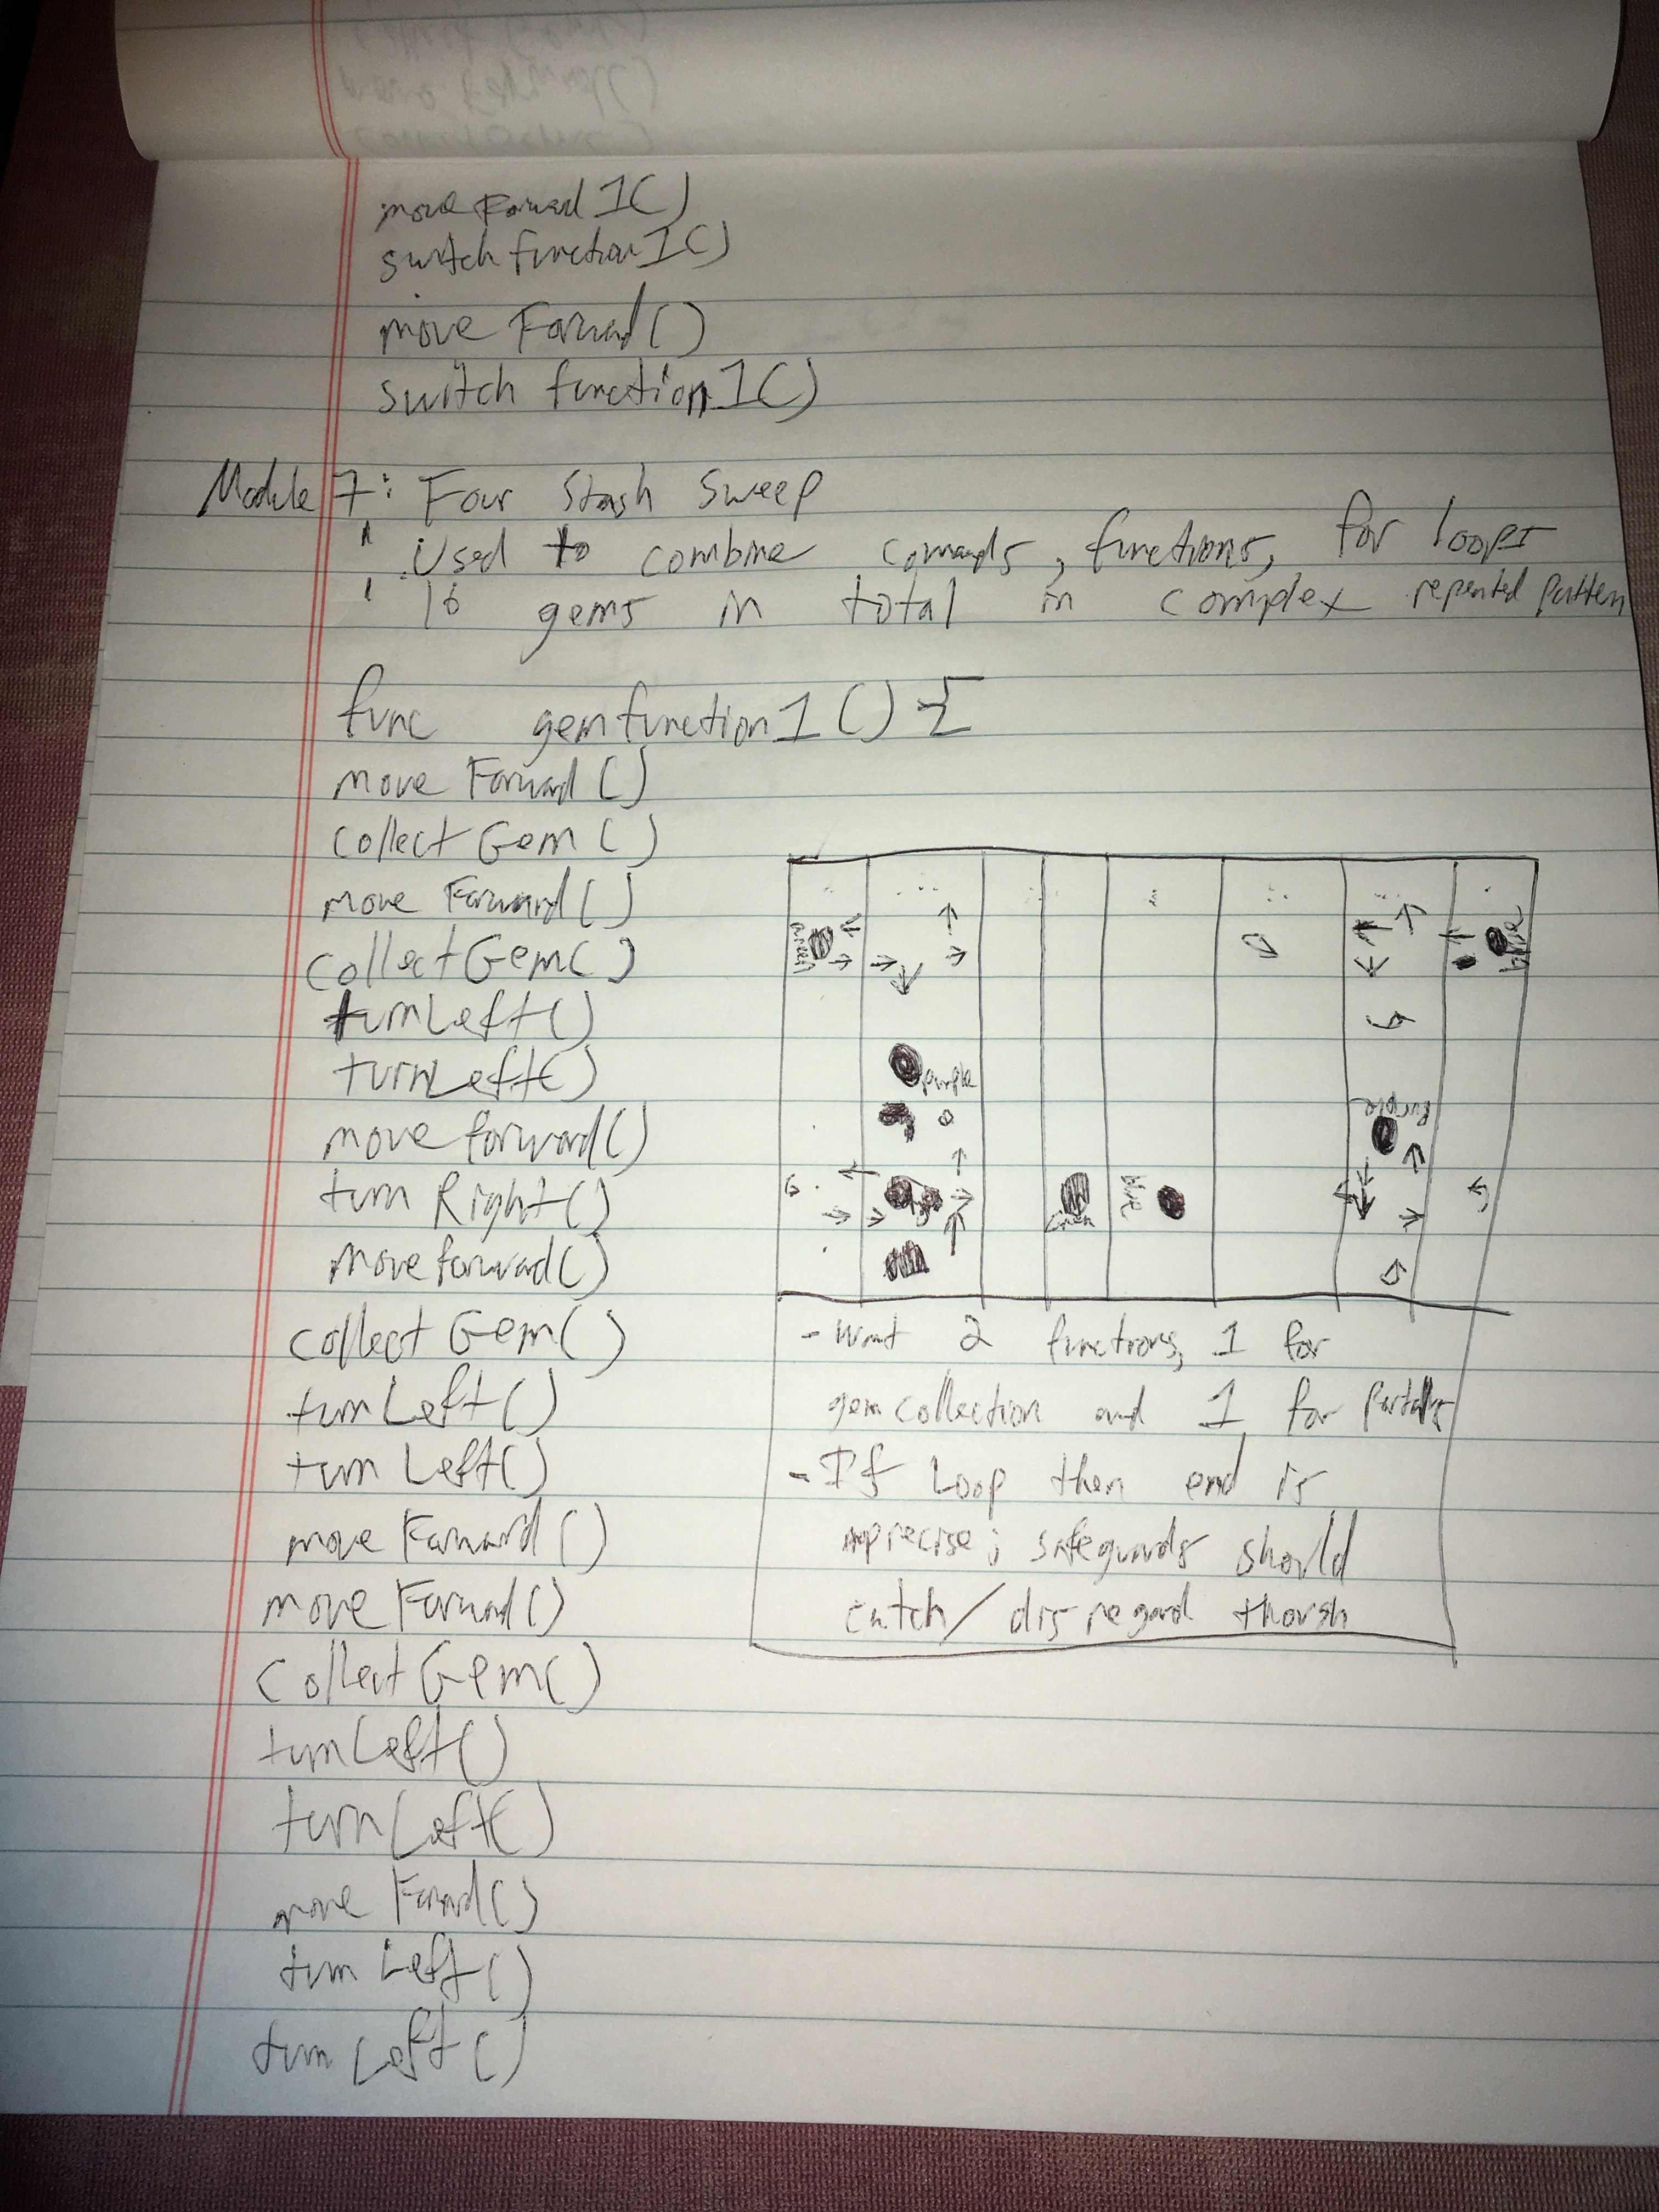 move Forward 1()
switch function 1()
move Forward()
switch function 1()
Module 7: Four Stash Sweep
: Used to combine commands, functions, for loops
: 16 gems in total in complex repeated pattern
func gem function 1() {
move Forward()
collect Gem()
move Forward()
collect Gem()
turn Left()
turn Left()
move forward()
turn Right()
move forward()
collect Gem()
turn Left()
turn Left()
move Forward()
move Forward()
collect Gem()
turn Left()
turn Left()
move Forward()
turn Left()
turn Left()
purple
purple
- Want 2 functions, 1 for
gem collection and 1 for
- If Loop then end is
imprecise; safeguards should
catch/disregard though